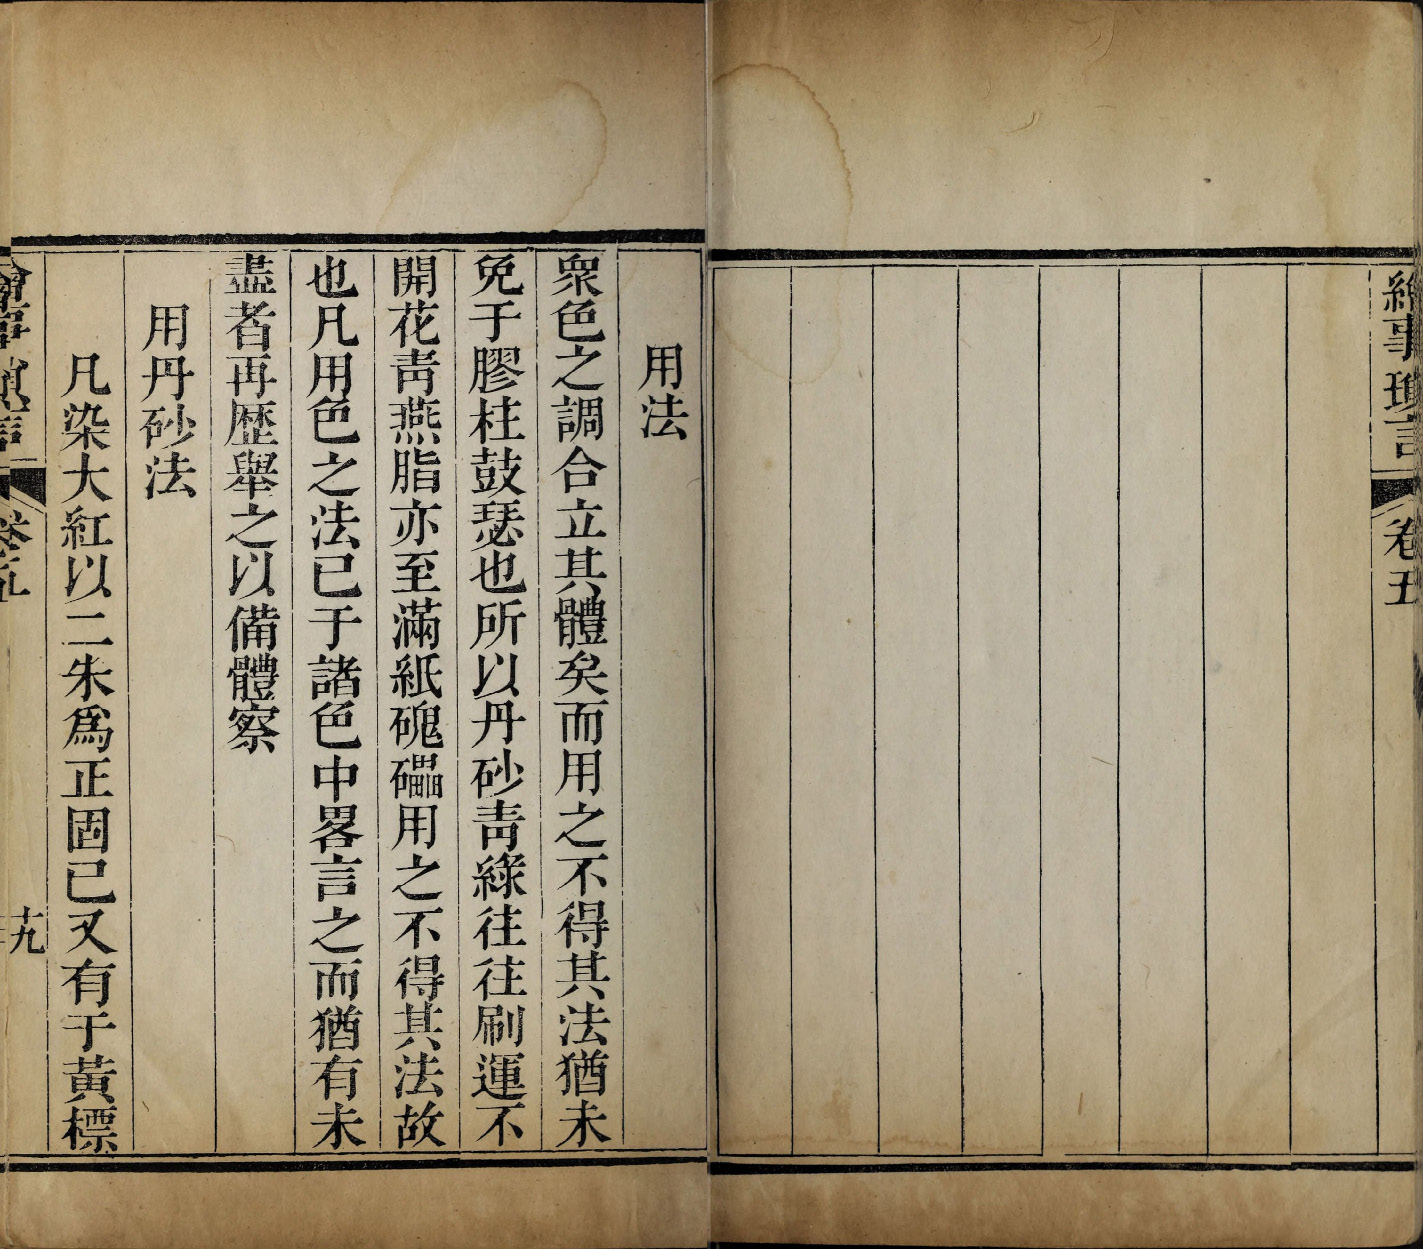 繪事瑣言 卷五
用法
衆色之調合立其體矣而用之不得其法猶未
免于膠柱鼓瑟也所以丹砂青綠往往刷運不
開花青燕脂亦至滿紙磈礧用之不得其法故
也凡用色之法已于諸色中畧言之而猶有未
盡者再歷舉之以備體察
用丹砂法
凡染大紅以二朱爲正固已又有于黃標
繪事瑣言 卷五 十九